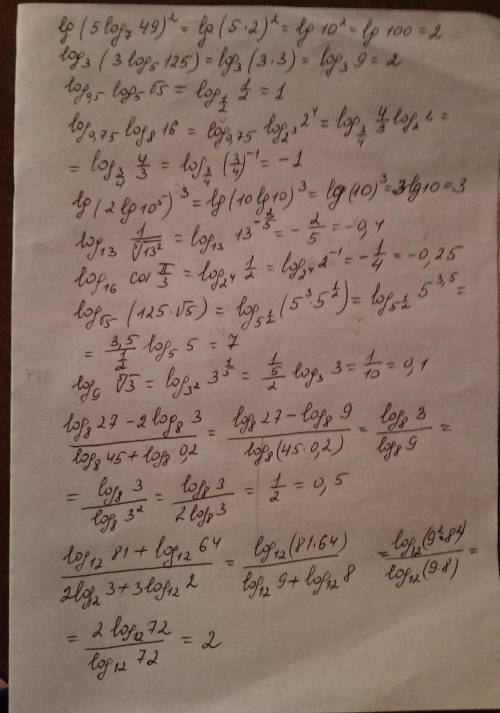 lg (5 log₇ 49)² = lg (5·2)² = lg 10² = lg 100 = 2
log₃ (3 log₅ 125) = log₃ (3·3) = log₃ 9 = 2
log₀,₅ log₅ √5 = log_{1/2} 1/2 = 1
log₀,₇₅ log₈ 16 = log₀,₇₅ log_{2³} 2⁴ = log_{3/4} 4/3 log₂ 2 =
= log_{3/4} 4/3 = log_{3/4} (3/4)⁻¹ = -1
lg (2 lg 10⁵)³ = lg (10 lg 10)³ = lg (10)³ = 3 lg 10 = 3
log₁₃ 1/⁵√13² = log₁₃ 13^{-2/5} = -2/5 = -0,4
log₁₆ cos π/3 = log_{2⁴} 1/2 = log_{2⁴} 2⁻¹ = -1/4 = -0,25
log_{√5} (125·√5) = log_{5^{1/2}} (5³·5^{1/2}) = log_{5^{1/2}} 5^{3,5} =
= 3,5/(1/2) log₅ 5 = 7
log₉ ⁵√3 = log_{3²} 3^{1/5} = (1/5)/2 log₃ 3 = 1/10 = 0,1
(log₈ 27 - 2 log₈ 3)/(log₈ 45 + log₈ 0,2) = (log₈ 27 - log₈ 9)/(log₈ (45·0,2)) = log₈ 3/log₈ 9 =
= log₈ 3/log₈ 3² = log₈ 3/2 log₈ 3 = 1/2 = 0,5
(log₁₂ 81 + log₁₂ 64)/(2 log₂ 3 + 3 log₁₂ 2) = log₁₂ (81·64)/(log₁₂ 9 + log₁₂ 8) = log₁₂ (9²·8²)/log₁₂ (9·8) =
= 2 log₁₂ 72/log₁₂ 72 = 2